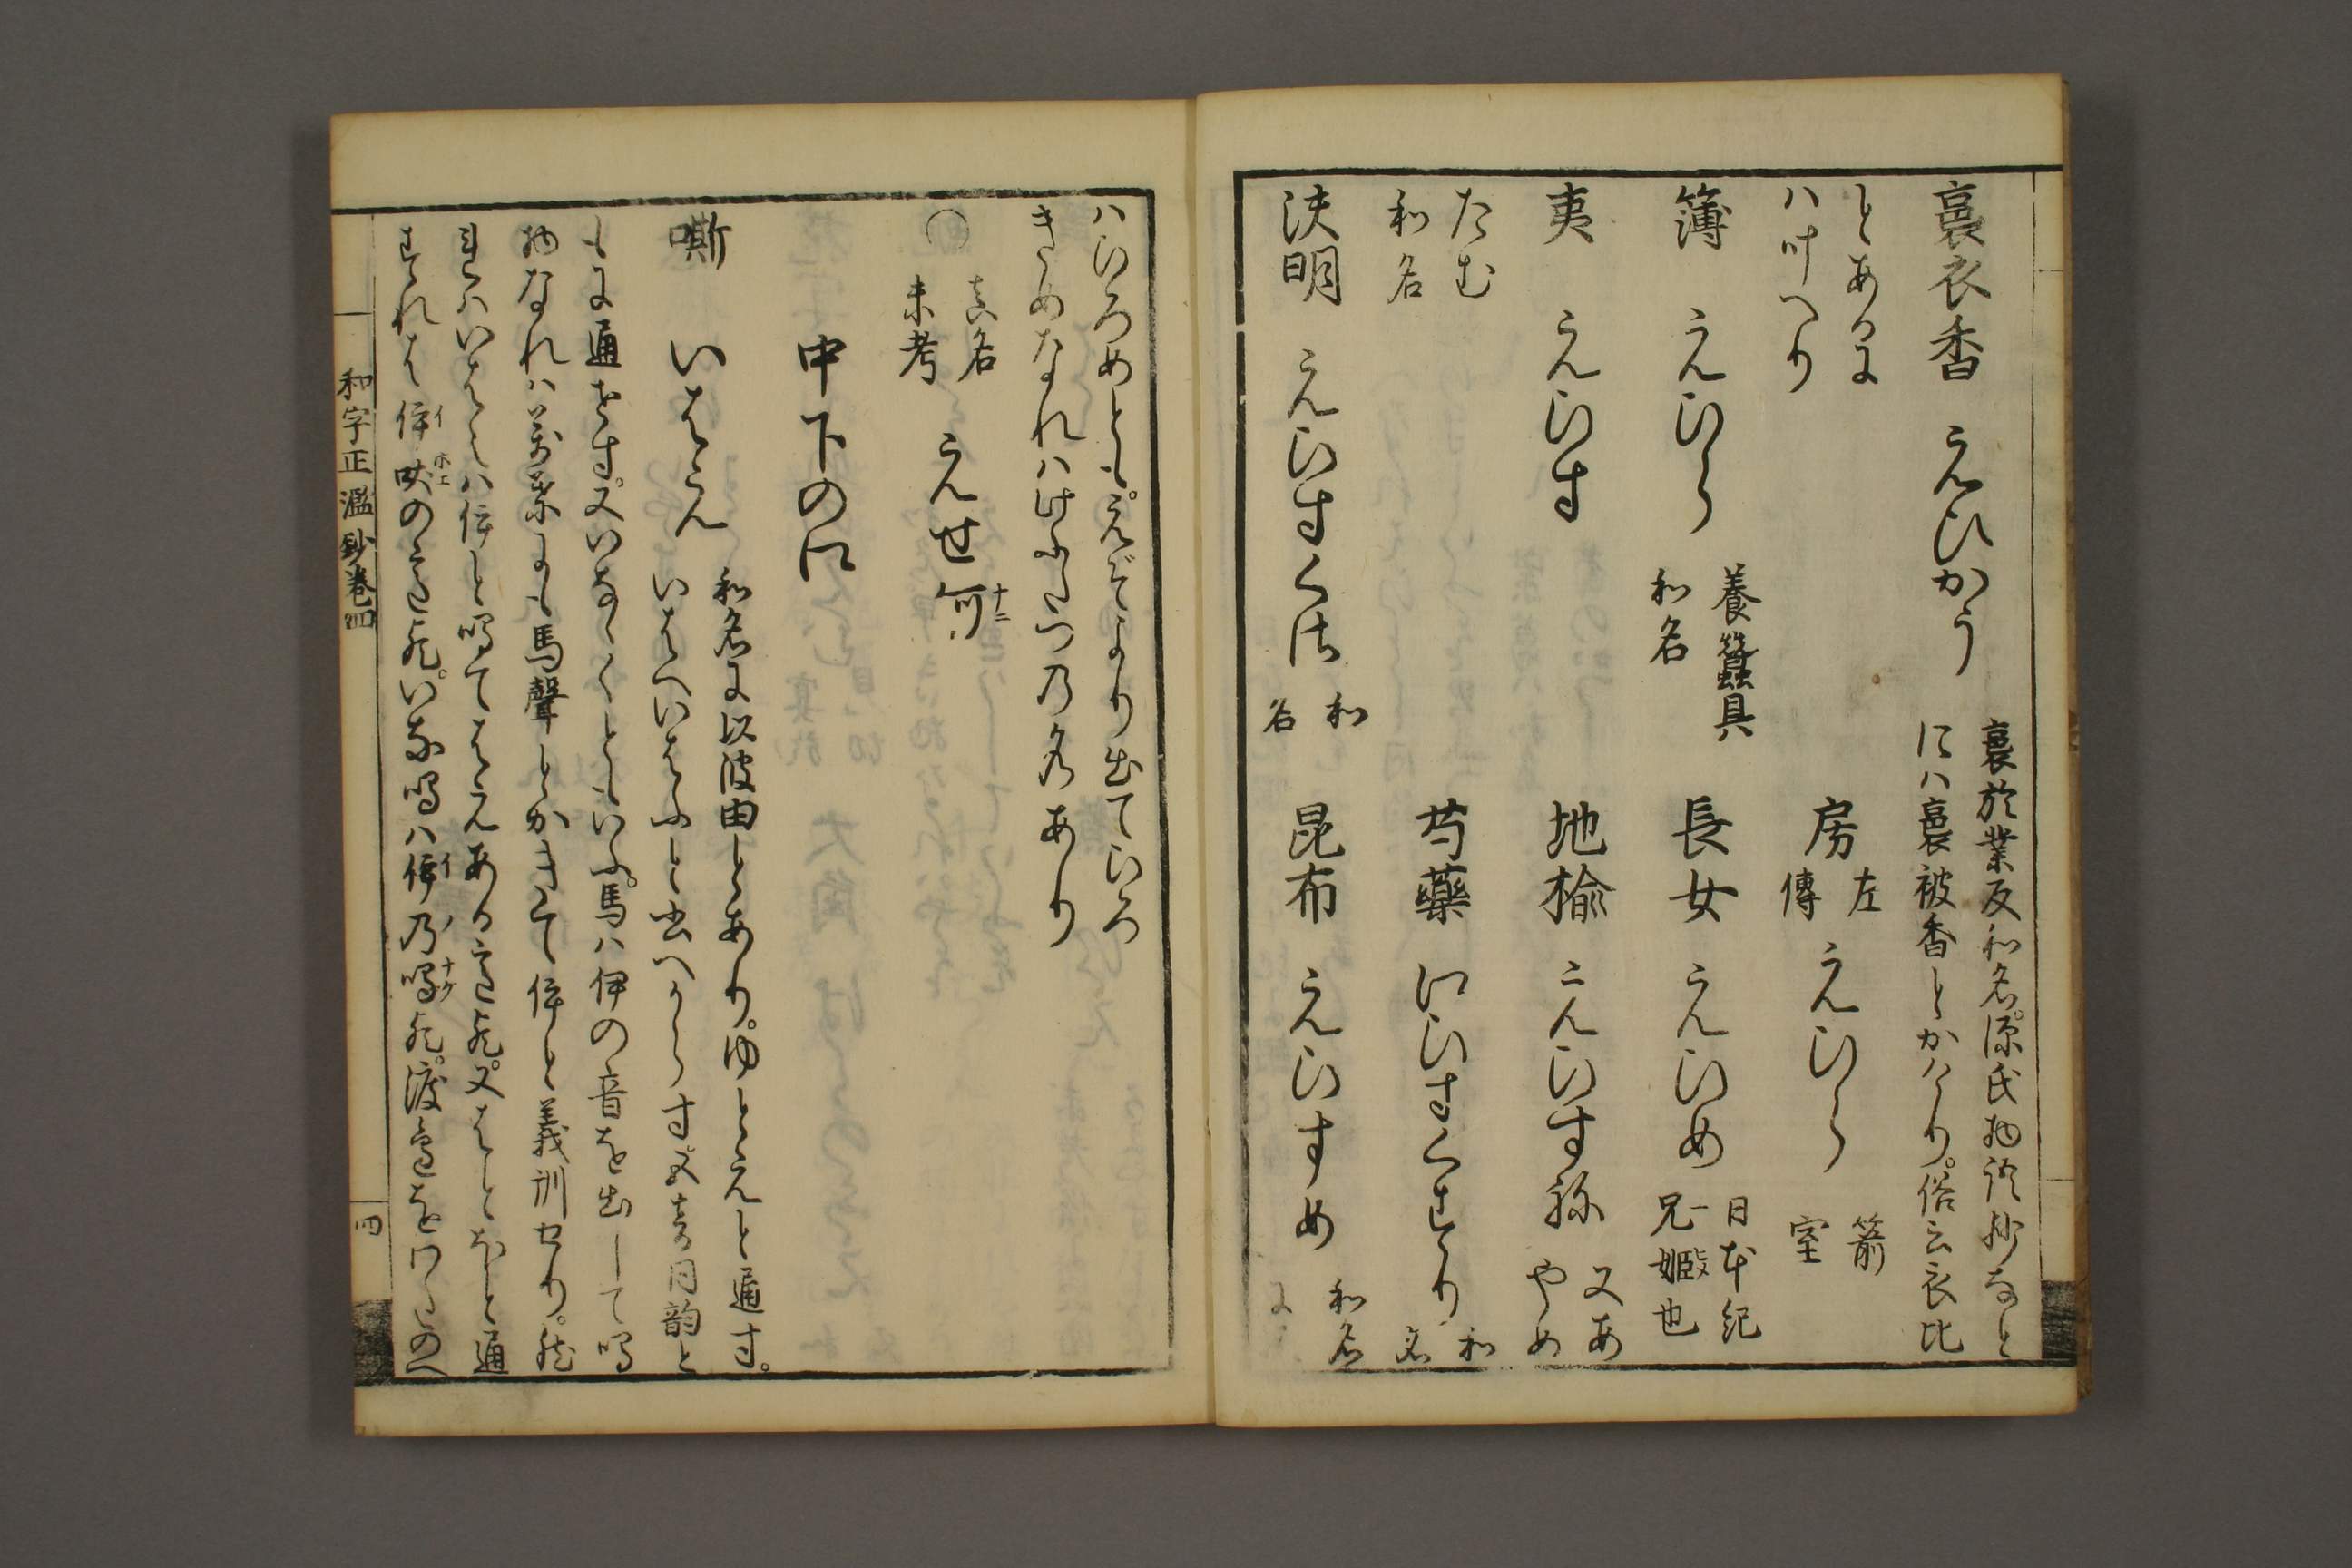 裛衣香 えひかう 裛於業反和名源氏物語抄なと
にハ裛被香とかけり。俗云衣比
とあるに
ハ叶へり
房 左傳 えひら 箭室
簿 えひら 養蠶具
和名
長女 えひめ 日本紀
一兄姫也
夷 えひす
地楡 えひすね 又あ
やめ
たむ
和名
芍藥 えひすくすり 和名
决明 えひすくさ 和名
昆布 えひすめ 和名
ハひろめとも。えぞより出てひろ
きめなれハけふたつ乃名あり
〇 真名
未考 えせ 何
中下のえ
嘶 いはえ 和名に以波由とあり。ゆとえと通す。
いはへいはふと書へからす。又音同韻と
もに通せす。又いなゝくともいふ。馬ハ伊の音を出して鳴
物なれハ萬葉にも馬聲とかきて伊と義訓セり。然
れハいはえハ伊と鳴てはえある意也。又はとほと通
すれは伊吠の意也。いな鳴ハ伊乃鳴也。
和字正濫鈔卷四
四